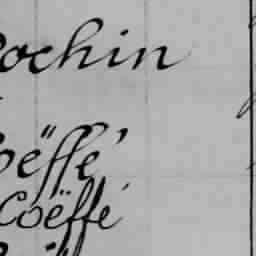 ochin
oëffé
Coëffé